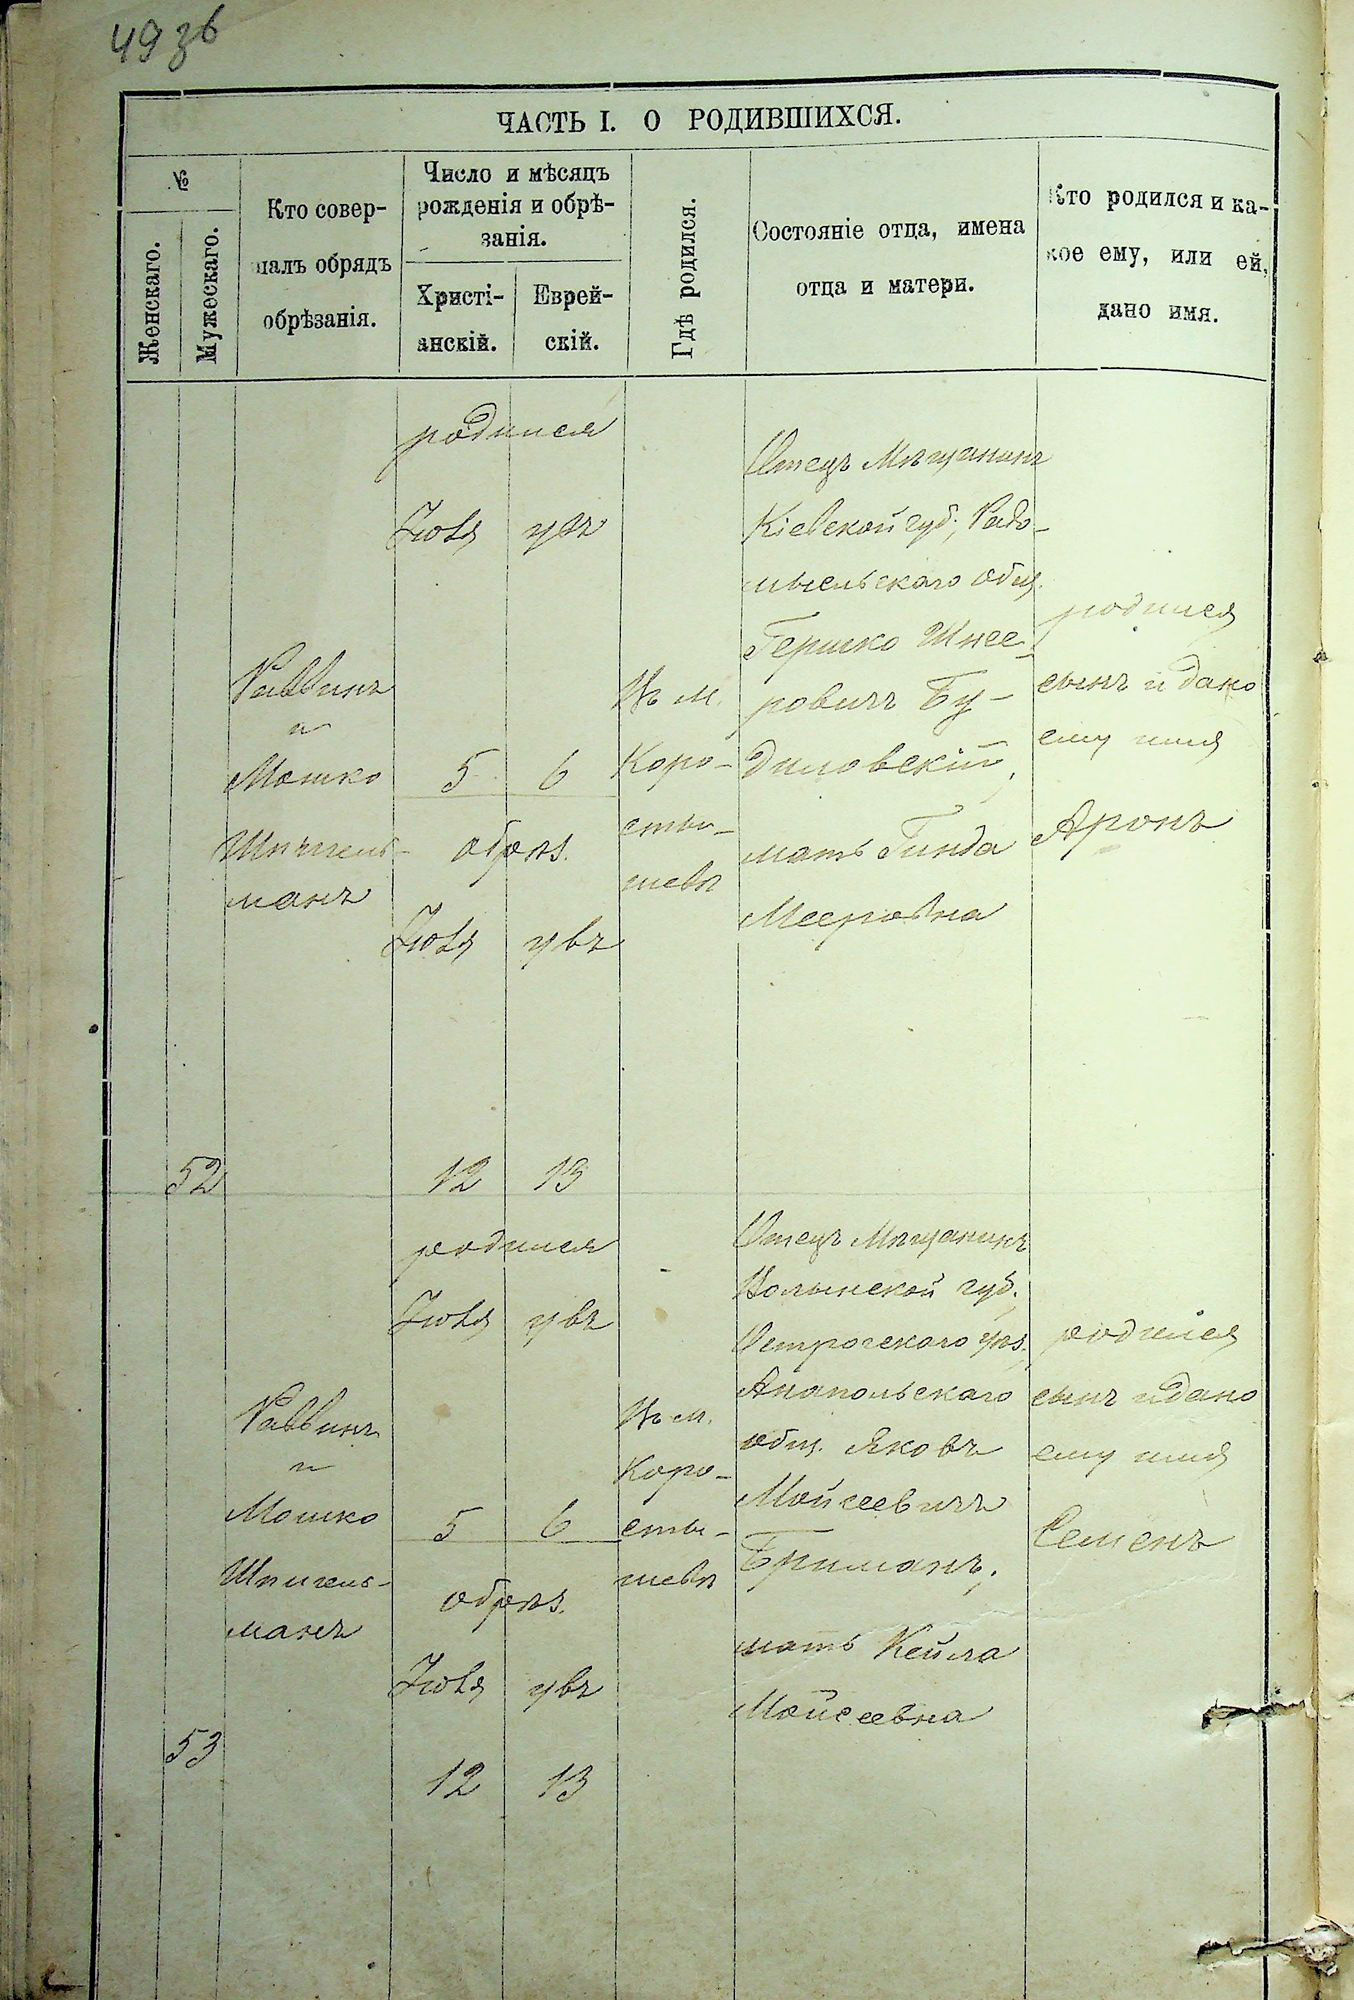 49 зв
ЧАСТЬ I. О РОДИВШИХСЯ.
№
Женскаго.
Мужескаго.
Кто совер-
шалъ обрядъ
обрѣзанія.
Число и мѣсяцъ
рожденія и обрѣ-
занія.
Христі-
анскій.
Еврей-
скій.
Гдѣ родился.
Состояніе отца, имена
отца и матери.
Кто родился и ка-
кое ему, или ей,
дано имя.
52
Раввинъ
и
Мошко
Шпигель-
манъ
родился
Іюля
5
6
обрѣз.
Іюля
12
13
Въ м.
Коро-
сты-
шевѣ
Отецъ Мѣщанинъ
Кіевской губ., Радо-
мысльскаго общ.
Гершко Шнее-
ровичъ Бу-
диловскій,
мать Гинда
Мееровна
родился
сынъ и дано
ему имя
Аронъ
53
Раввинъ
и
Мошко
Шпигель-
манъ
родился
Іюля
5
6
обрѣз.
Іюля
12
13
Въ м.
Коро-
сты-
шевѣ
Отецъ Мѣщанинъ
Волынской губ.,
Острогскаго уѣз.,
Анапольскаго
общ. Яковъ
Мойсеевичъ
Бриманъ,
мать Кейла
Мойсеевна
родился
сынъ и дано
ему имя
Семенъ